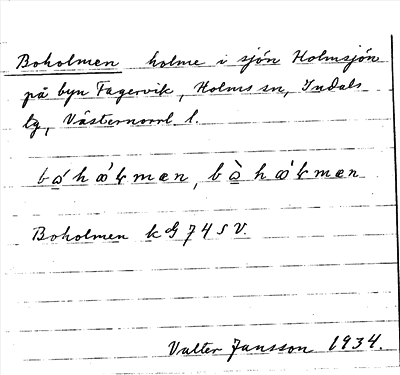 Boholmen holme i sjön Holmsjön
på byn Fagervik, Holms sn, Indals
tg, Västernorrl l.
Boholmen kG 74 SV.
Valter Jansson 1934.